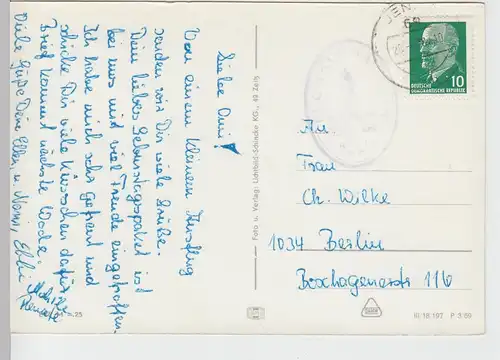 Liebe Omi!
Von einem kleinem Ausflug
senden wir Dir viele Grüße.
Dein liebes Geburtstagspaket ist
bei uns mit viel Freude eingetroffen.
Ich habe mich sehr gefreut und
schicke Dir viele Küsschen dafür.
Brief kommt nächste Woche.
Viele Grüße Deine Ellen u. Mann,
Renate
Foto u. Verlag: Lichtbild-Schincke KG., 49 Zeitz
JEN
10
DEUTSCHE
DEMOKRATISCHE REPUBLIK
An
Frau
Ch. Wilke
1034 Berlin
Boxhagenerstr 116
III 18 197 P 3 69